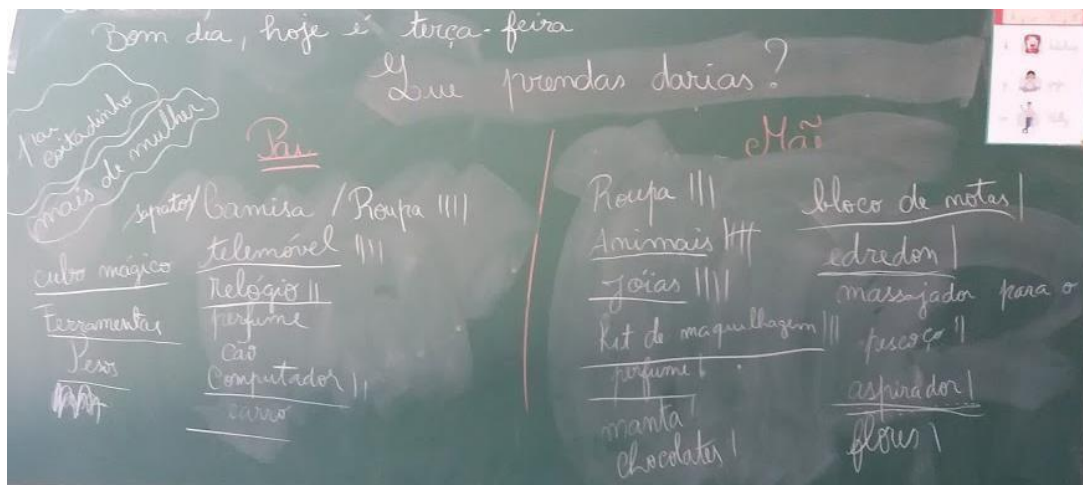 Bom dia, hoje é terça-feira
Que prendas darias?
pai
coitadinho
mais de mulher
Pai
sapatos/Camisa / Roupa ||||
telemóvel ||||
Relógio ||
perfume
Cão
Computador ||
carro
cubo mágico
Ferramentas
Pesos
Mãe
Roupa ||||
Animais ||||
jóias ||||
Kit de maquilhagem |||
perfume |
manta |
chocolates |
bloco de notas |
edredon |
massajador para o
pescoço ||
aspirador |
flores |